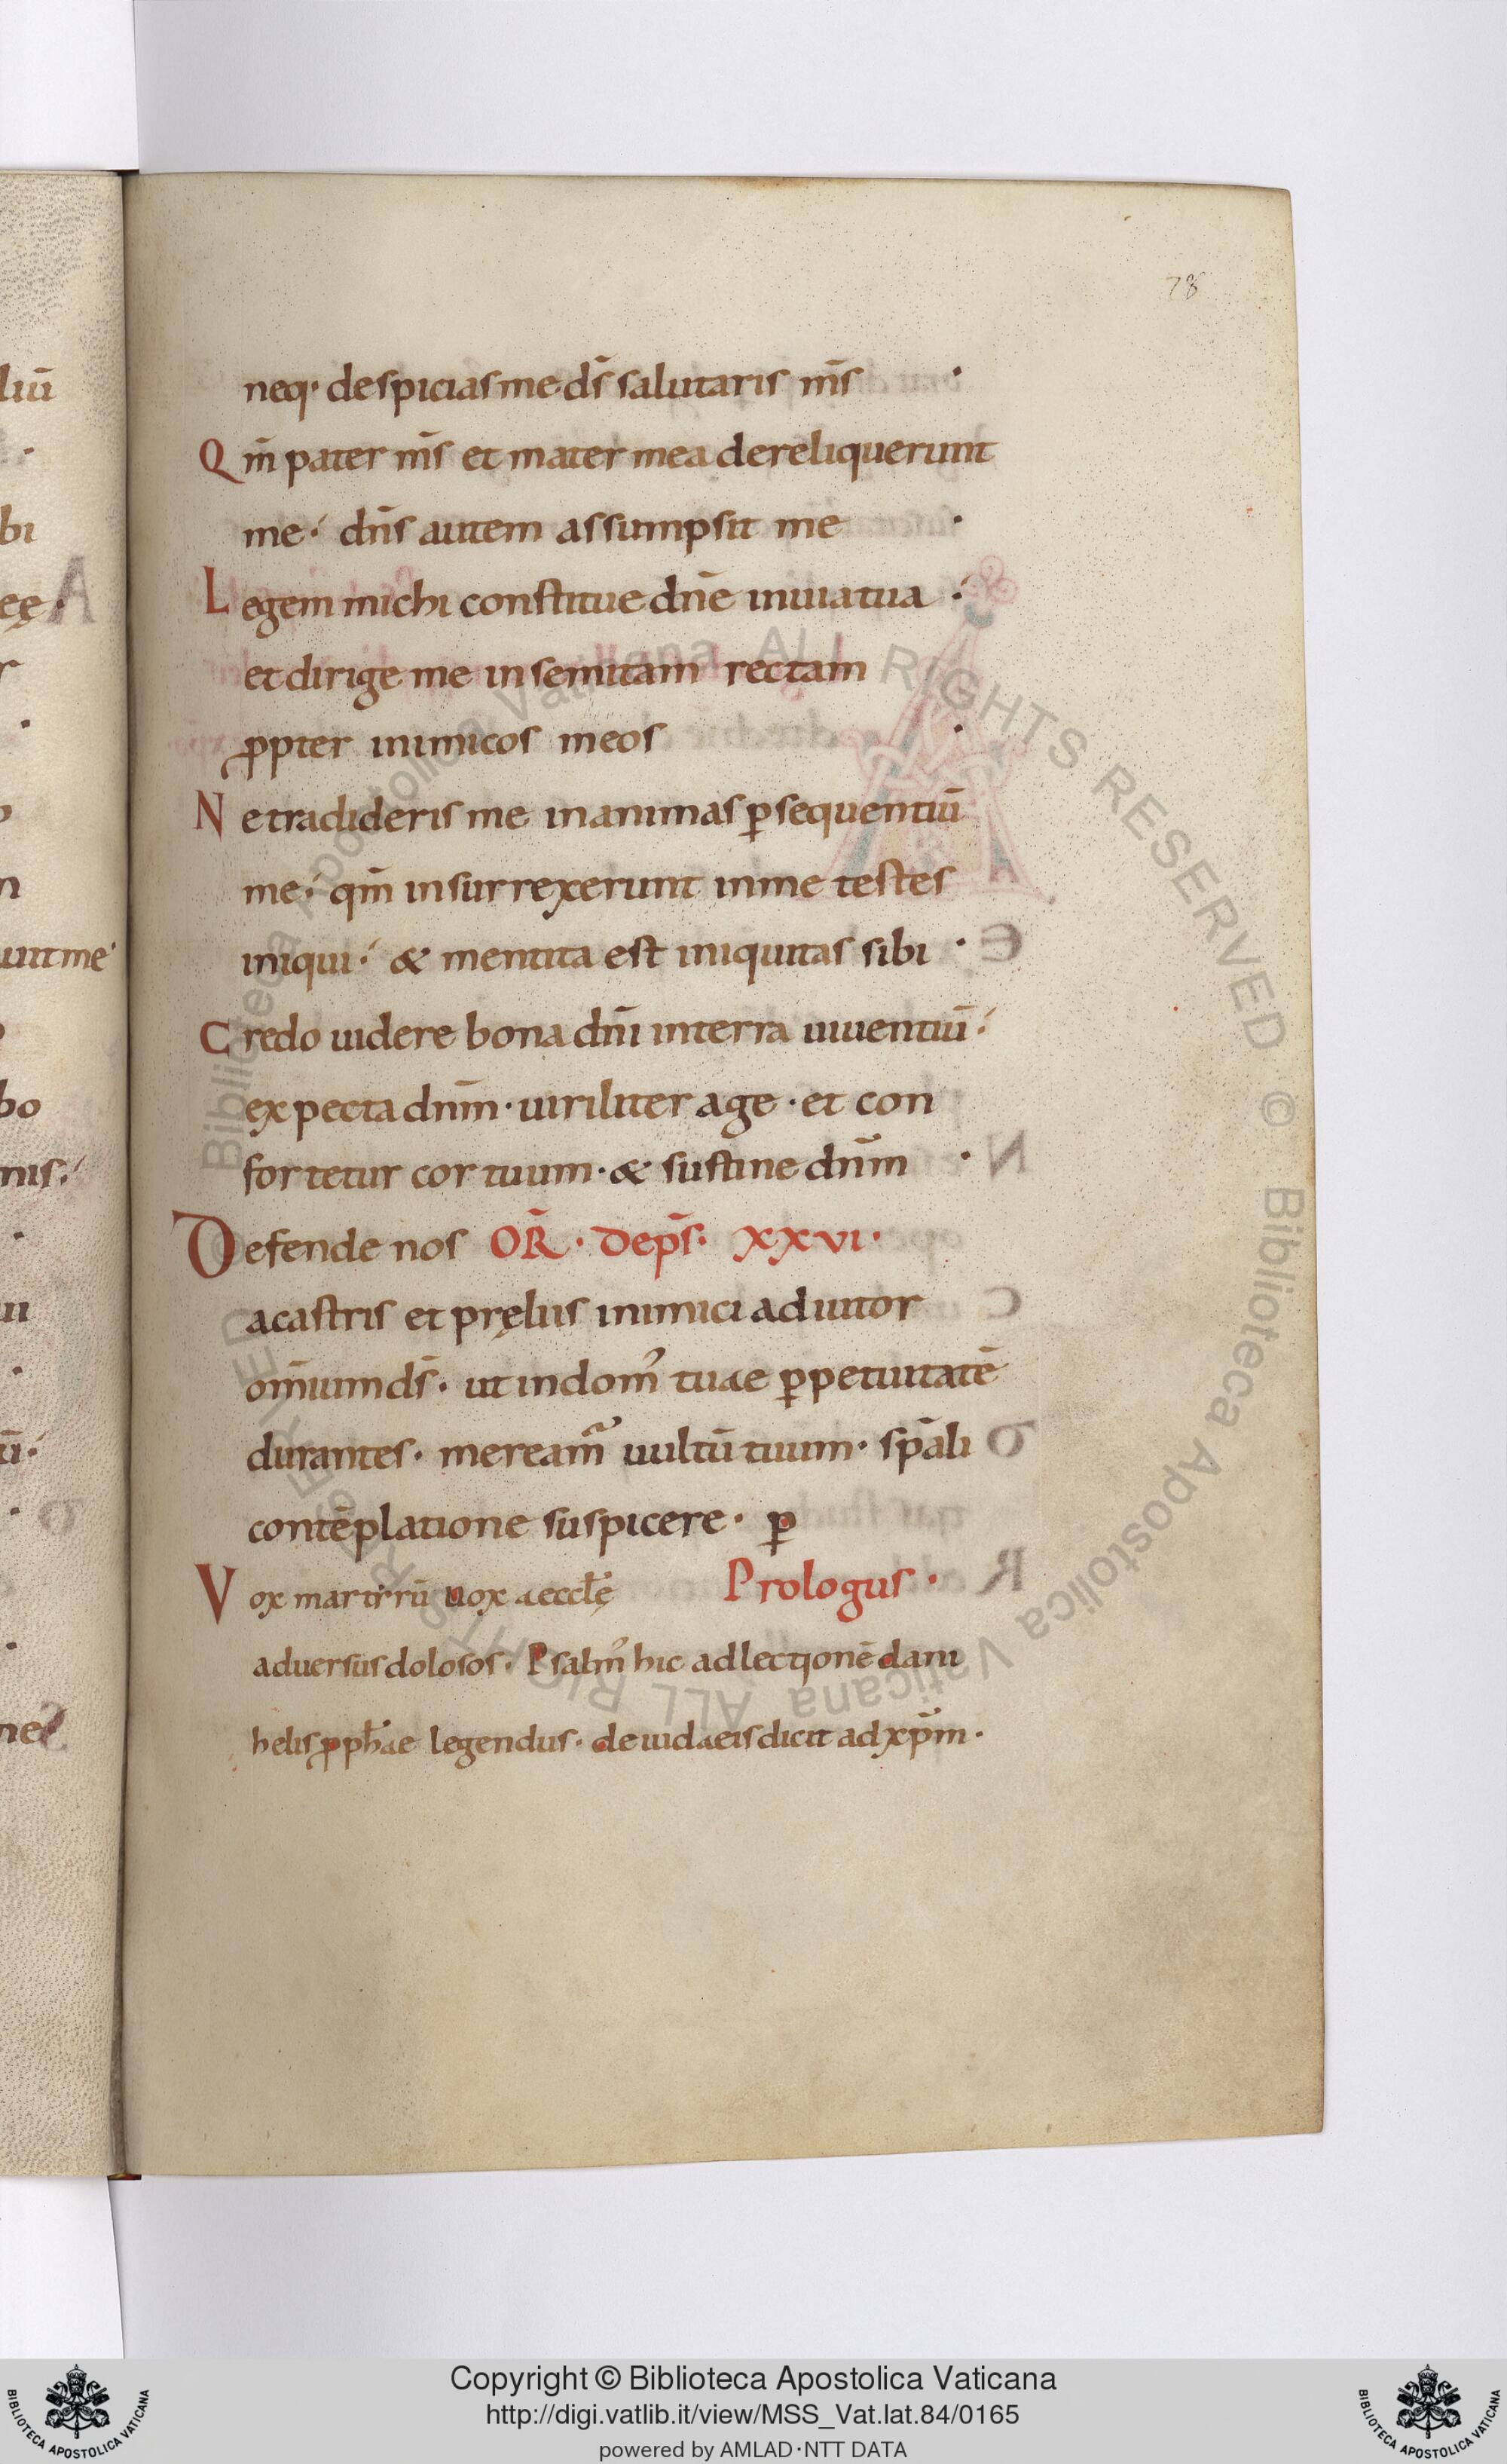 78
neq· despicias me ds̄ salutaris ms̄ ·
Qm̄ pater ms̄ et mater mea dereliquerunt
me·́ dn̄s autem assumpsit me ·
Legem michi constitue dn̄e in uia tua ·́
et dirige me in semitam rectam
ꝓpter inimicos meos ·
Ne tradideris me in animas ꝑsequentiū
me·́ qm̄ insurrexerunt in me testes
iniqui·́ & mentita est iniquitas sibi ·
Credo uidere bona dn̄i in terra uiuentiū·́
expecta dnm̄· uiriliter age · et con
fortetur cor tuum· & sustine dnm̄ ·
Defende nos OR̄ · De ps̄· xxvi·
a castris et pręliis inimici adiutor
om̄ium ds̄· ut in domꝰ tuae ꝑpetuitatē
durantes· meream̄ uultū tuum· sp̄ali
contēplatione suspicere· ꝑ
Vox martirū uox aecclę̄ Prologus·
aduersus dolosos· Psalmꝰ hic ad lectionē dani
helis ꝓph̄ae legendus· de iudaeis dicit ad xp̄m·
liū
·
bi
eę· A
r
·
n
uit me·
bo
nis·́
·
ii
·
ū·́
·
·
ne
Biblioteca Apostolica Vaticana ALL RIGHTS RESERVED © Biblioteca Apostolica Vaticana ALL RIGHTS RESERVED ©
Copyright © Biblioteca Apostolica Vaticana
http://digi.vatlib.it/view/MSS_Vat.lat.84/0165
powered by AMLAD·NTT DATA
BIBLIOTECA APOSTOLICA VATICANA
BIBLIOTECA APOSTOLICA VATICANA